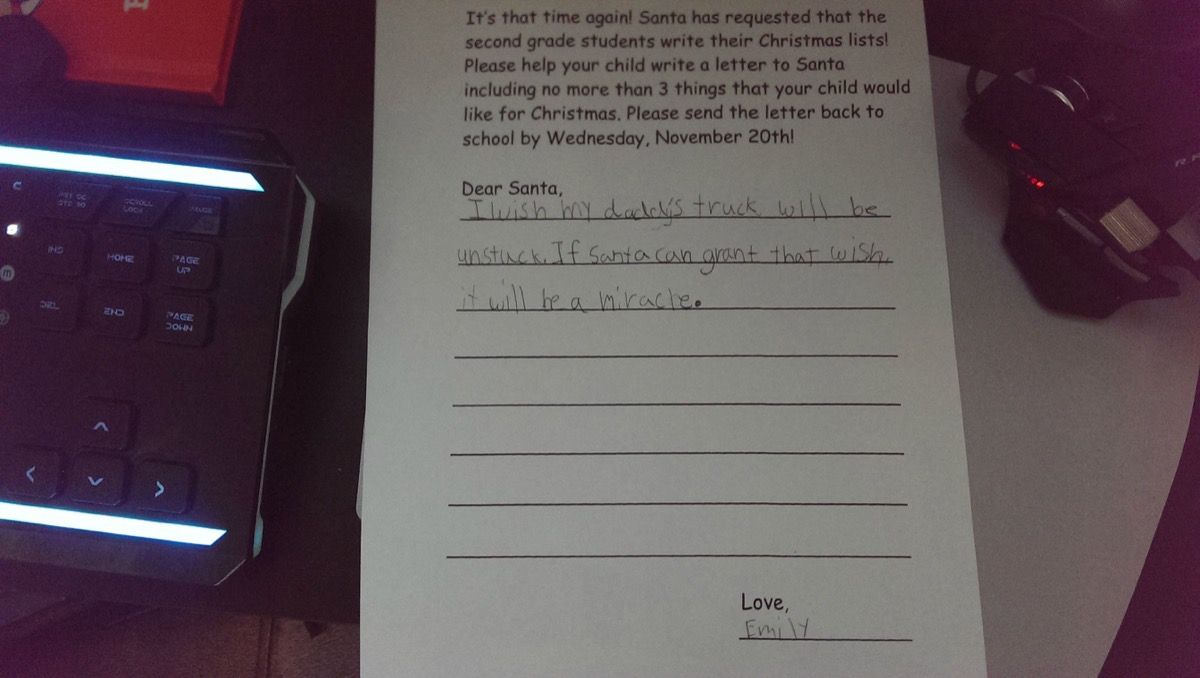 It's that time again! Santa has requested that the
second grade students write their Christmas lists!
Please help your child write a letter to Santa
including no more than 3 things that your child would
like for Christmas. Please send the letter back to
school by Wednesday, November 20th!
Dear Santa,
I wish my daddy's truck will be
unstuck. If Santa can grant that wish,
it will be a miracle.
Love,
Emily
SCROLL
LOCK
PAUSE
INS
HOME
PAGE
UP
DEL
END
PAGE
DOWN